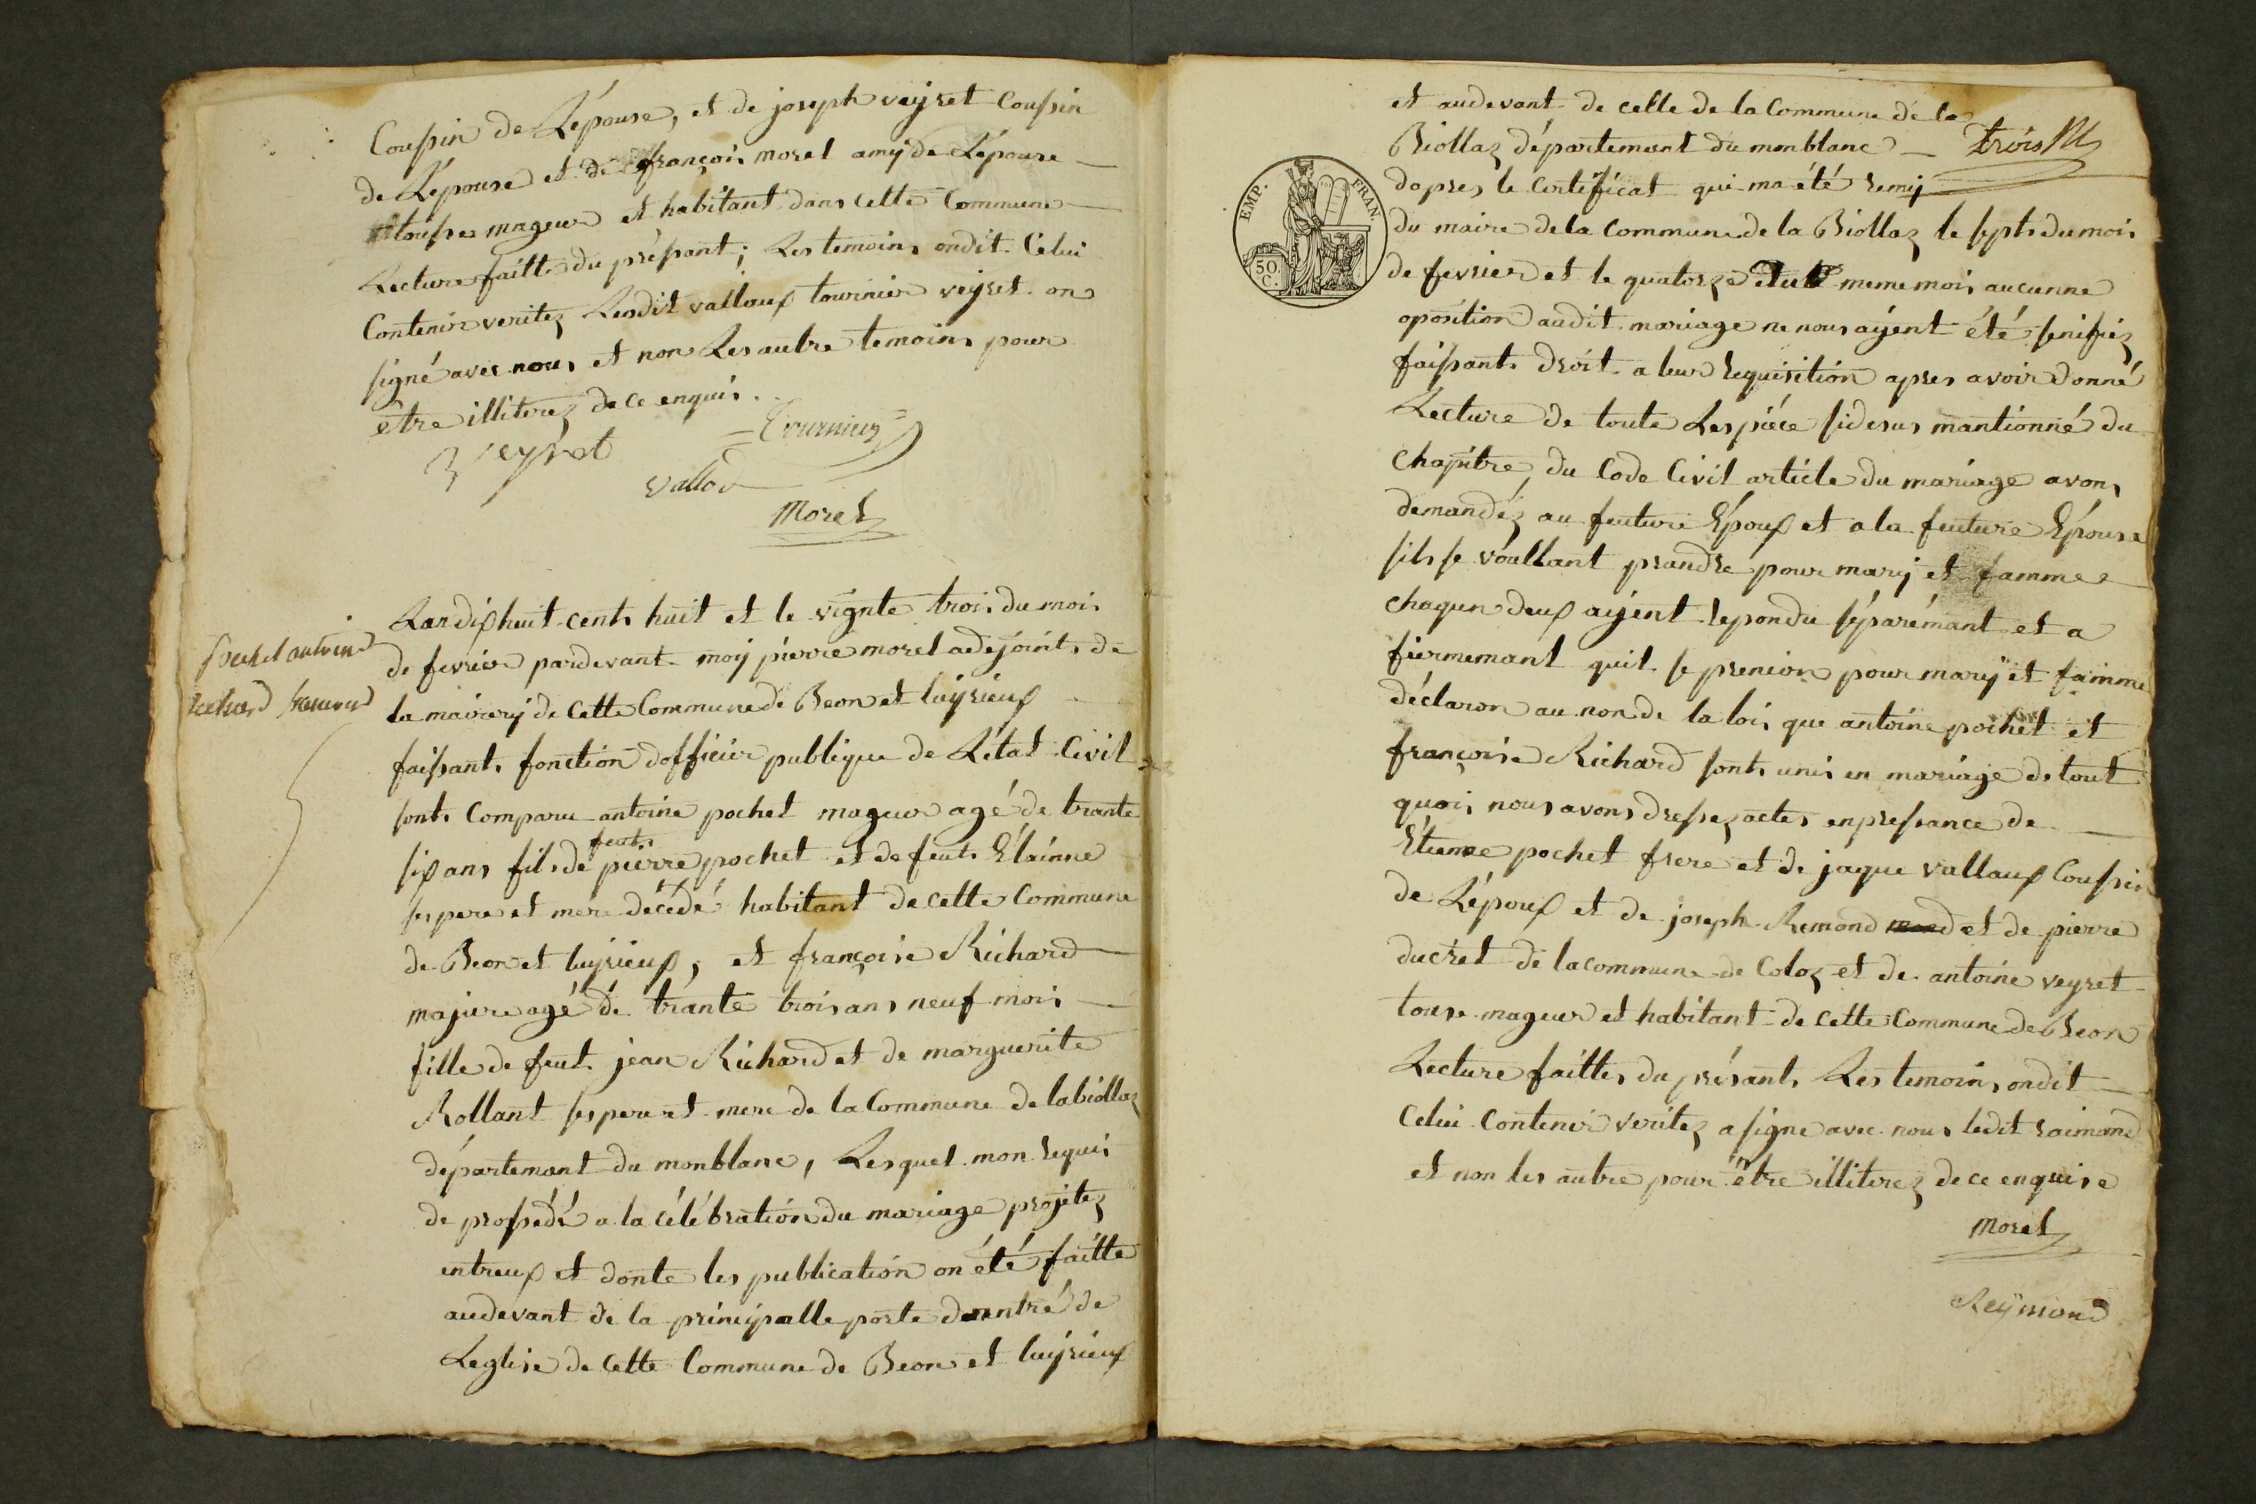 Coussin de Lépouse, et de joseph veyret Coussin
de Lépouse et de françois morel amy de Lépouse
touse mageur et habitant dans cette Commune
Lecture faitte du présant; Les temoins ondit Celui
Contenir veritez Lesdit valloux tournier veyret on
signé avec nous et non Les autre temoins pour
être illiterez de ce enquis.
Veyret
Tournier
Vallod
Morel
pochet antoine
richard
Lan dix huit cents huit et le vignte trois du mois
de fevrier pardevant moy pierre morel adejoints de
la mairery de Cette Commune de Beon et luyrieux
faissants fonction dofficier publique de Létat Civil
sonts Comparu antoine pochet mageur agé de trante
feuts
six ans fils de pierre pochet et de feuts Elainne
ses pere et mere décédé habitant de Cette Commune
de Beon et luyrieux, et françoise Richard
majeure agé de trante trois ans neuf mois
fille de feut jean Richard et de marguerite
Rollant ses pere et mere de la Commune de labiollaz
départemant du monblanc, Lesquel mon requis
de prossédé a la célébration du mariage projetez
entreux et donte les publication on été faitte
audevant de la principalle porte dantré de
Leglise de Cette Commune de Beon et luyrieux
et audevant de celle de la Commune de la
Biollaz départemant du monblanc
trois M
dapres le Certificat qui ma été remy
EMP. FRAN.
50. C.
du maire de la Commune de la Biollaz le septs du mois
de fevrier et le quatorze du meme mois aucunne
oposition audit mariage ne nous ayent été senifiez
faissants droit a leur requisition apres avoir donné
Lecture de toute Les piéce sidesus mantionné du
chapitre du Code Civil article du mariage avons
demandez au feuture Époux et a la feuture Épouse
sils se voullant prandre pour mary et famme
chaqun deux ayent repondu séparémant et a
fiermemant quil se prenion pour mary et famme
déclaron au non de la loi, que antoine pochet et
françoise Richard sonts unis en mariage de tout
quoi nous avons dressez actes en pressance de
Étienne pochet frere et de jaque vallaux Coussin
de Lépoux et de joseph Remond et de pierre
ducret de la commune de Coloz et de antoine veyret
touse mageur et habitant de Cette Commune de Beon
Lecture faittes du présants Les temoins ondit
Celui Contenir veritez a signe avec nous ledit raimond
et non les autre pour être illiterez de ce enquise
Morel
Reymond